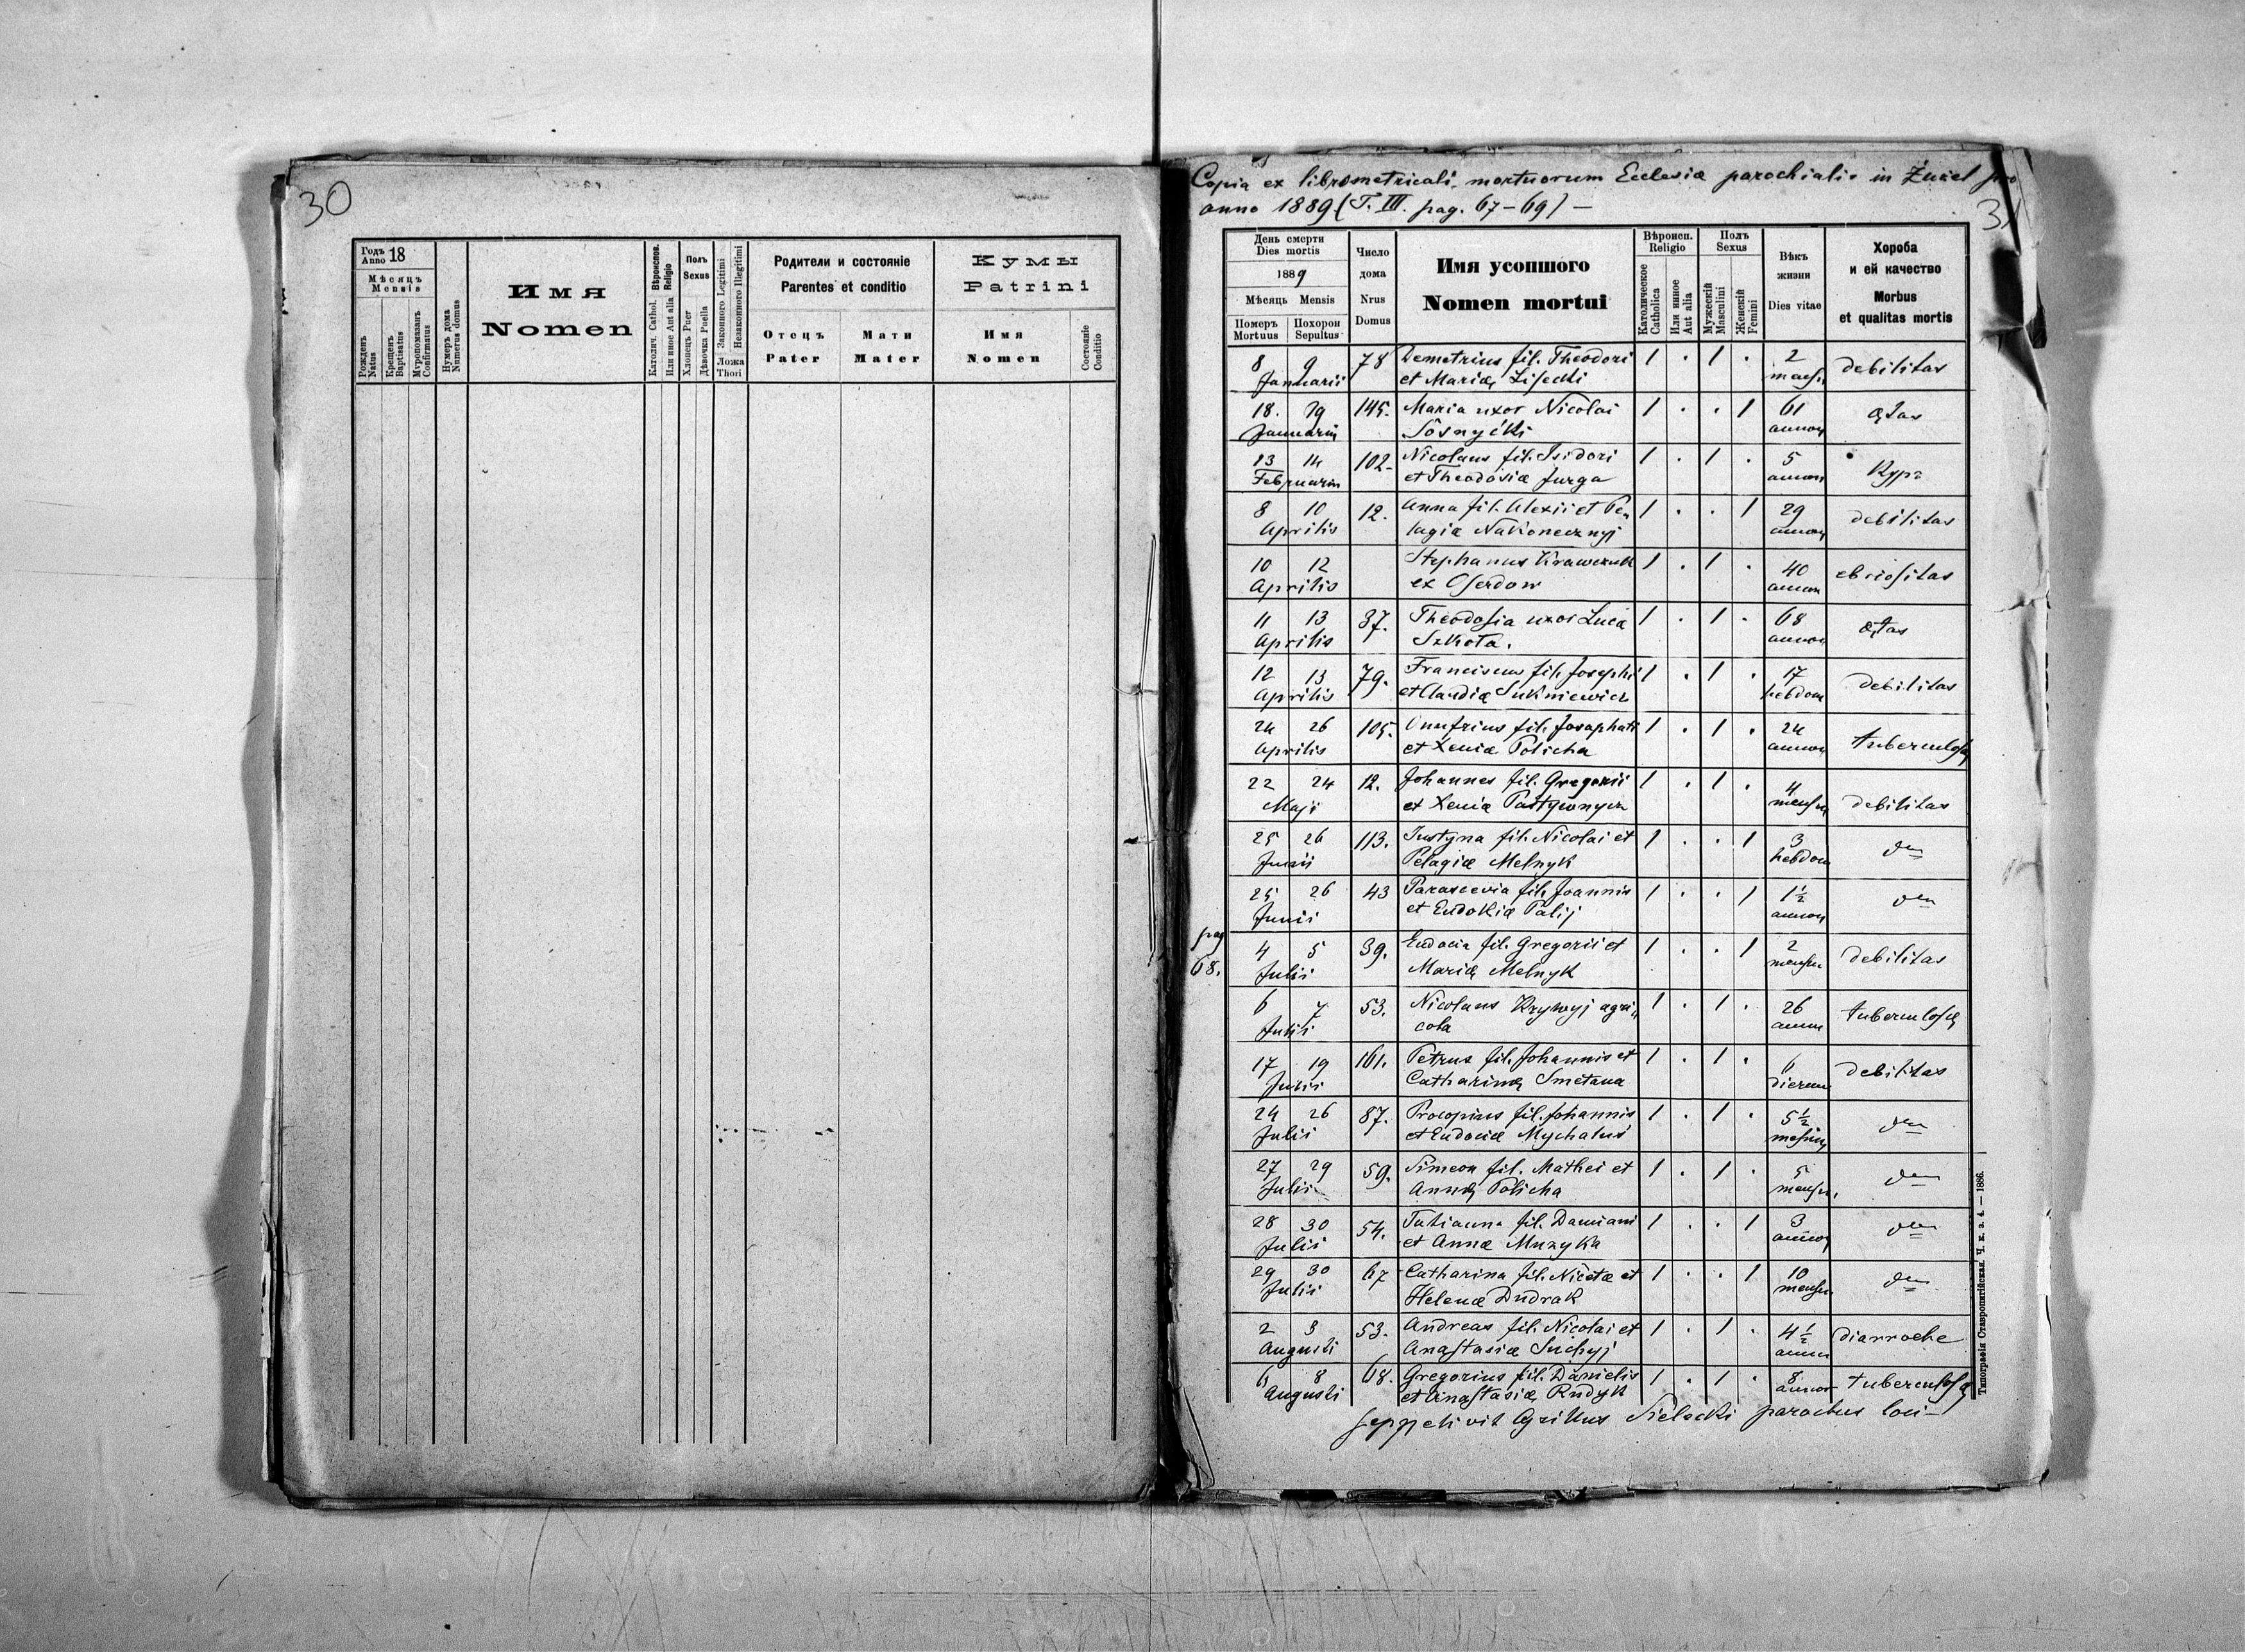 30
Годъ 18
Anno
Мѣсяцъ
Mensis
Рожденъ
Natus
Крещенъ
Baptisatus
Муропомазанъ
Confirmatus
Нумеръ дома
Numerus domus
Имя
Nomen
Вѣроиспов.
Religio
Католич. Cathol.
Или иное Aut alia
Полъ
Sexus
Хлопецъ Puer
Дѣвочка Puella
Законного Legitimi
Незаконного Illegitimi
Ложа
Thori
Родители и состояніе
Parentes et conditio
Отецъ
Pater
Мати
Mater
Кумы
Patrini
Имя
Nomen
Состояніе
Conditio
Copia ex libro metricali mortuorum Ecclesiæ parochialis in Żużel pro
anno 1889 (T. III. pag. 67-69) —
31
День смерти
Dies mortis
1889
Мѣсяць Mensis
Померъ Похорон
Mortuus Sepultus
Число
дома
Nrus
Domus
Имя усопшого
Nomen mortui
Вѣроисп.
Religio
Католическое
Catholica
Или инное
Aut alia
Полъ
Sexus
Мужескій
Masculini
Женскій
Femini
Вѣкъ
жизни
Dies vitae
Хороба
и ей качество
Morbus
et qualitas mortis
8 9 78 Demetrius fil. Theodori 1 . 1 . 2 debilitas
Januarii et Mariæ Lisecki mens.
18. 19 145. Maria uxor Nicolai 1 . . 1 61 ætas
Januarii Sosnycki annor
13 14 102 Nicolaus fil. Isidori 1 . 1 . 5 Кур
Februarii et Theodosiæ Jurga annor
8 10 12. Anna fil. Alexii et Pe„ 1 . . 1 29 debilitas
Aprilis lagiæ Nakonecznyj annor
10 12 Stephanus Krawczuk 1 . 1 . 40 ebriositas
Aprilis ex Oserdow annor
11 13 37. Theodosia uxor Lucæ 1 . 1 . 68 ætas
Aprilis Szkota. annor
12 13 79. Franciscus fil. Josephi 1 . 1 . 17 debilitas
Aprilis et Claudiæ Sukniewicz hebdom
24 26 105. Onufrius fil. Josaphati 1 . 1 . 24 tuberculosa
Aprilis et Xeniæ Policha annor
22 24 12. Johannes fil. Gregorii 1 . 1 . 4 debilitas
Maji et Xeniæ mensm
25 26 113. Justyna fil. Nicolai et 1 . . 1 3 dtto
Junii Pelagiæ Melnyk hebdom
25 26 43 Parascevia fil. Joannis 1 . . 1 1½ dtto
Junii et Eudokiæ Palij annor
pag
68.
4 5 39. Eudocia fil. Gregorii et 1 . . 1 2 debilitas
Julii Mariæ Melnyk mensm
6 7 53. Nicolaus Krywyj agri„ 1 . 1 . 26 tuberculosæ
Julii cola annor
17 19 161. Petrus fil. Johannis et 1 . 1 . 6 debilitas
Julii Catharinæ Smetana dierum
24 26 87. Procopius fil. Johannis 1 . 1 . 5½ dtto
Julii et Eudociæ Mychaluś mensium
27 29 59. Simeon fil. Mathei et 1 . 1 . 5 dtto
Julii Annæ Policha mensm.
28 30 54. Tatianna fil. Damiani 1 . . 1 3 dtto
Julii et Annæ Muzyka annor
29 30 67 Catharina fil. Nicetæ et 1 . . 1 10 dtto
Julii Helenæ Dudrak mensm.
2 3 53. Andreas fil. Nicolai et 1 . 1 . 4½ diarroehe
Augusti Anastasiæ Suchyj annor
6 8 68. Gregorius fil. Danielis 1 . 1 . 8 tuberculosæ
Augusti et Anastasiæ Rudyk annor
Seppelivit Cyrillus Sielecki parochus loci —
Типографія Ставропигійская. Ч. к. з. 4. — 1886.